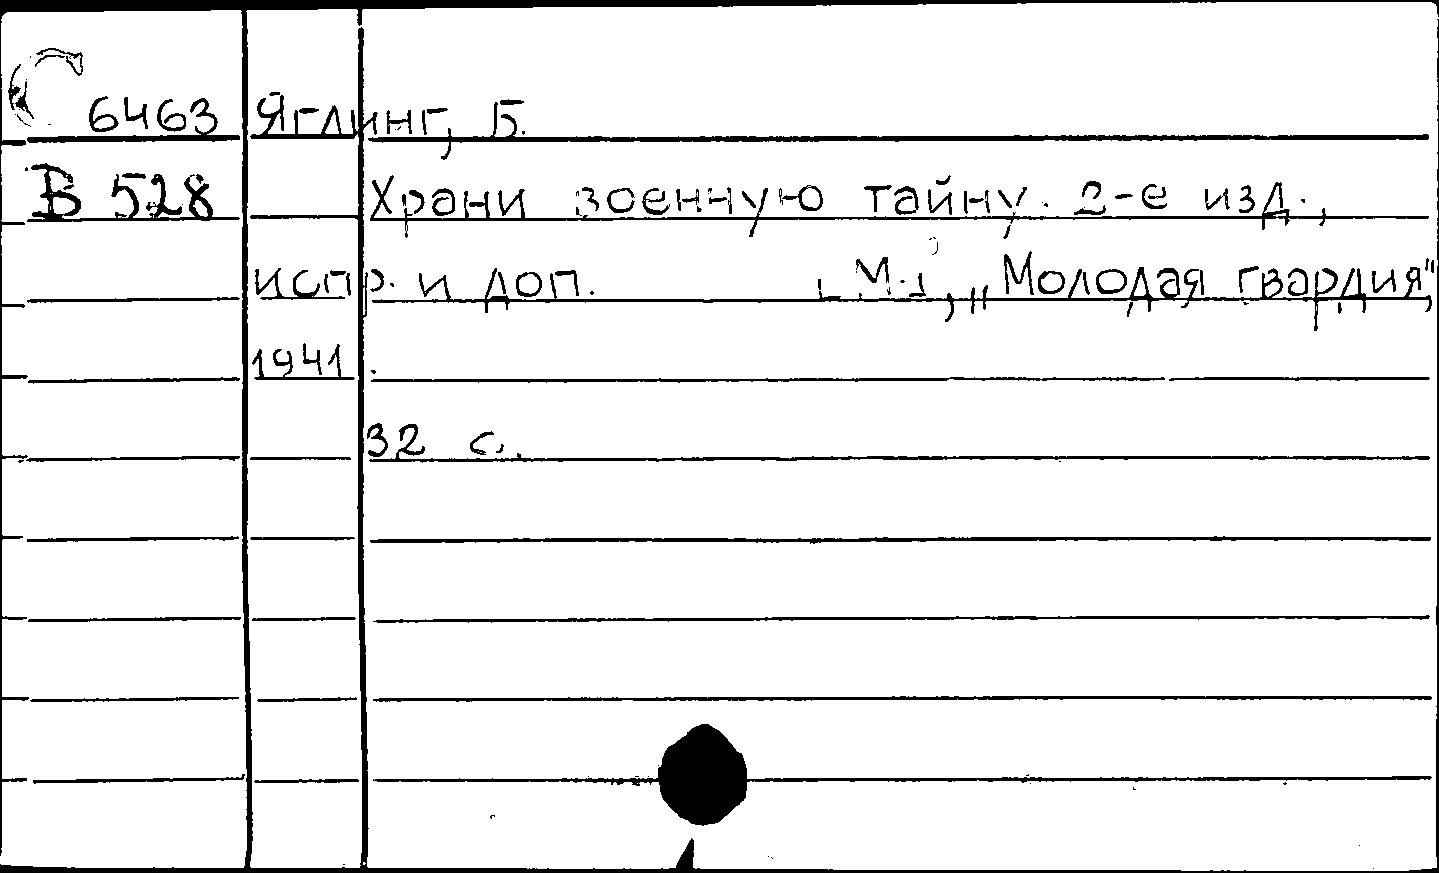 С 6463 Яглинг, Б.
В 528 Храни военную тайну. 2-е изд.,
испр. и доп. [М.], „Молодая гвардия",
1941.
32 с.